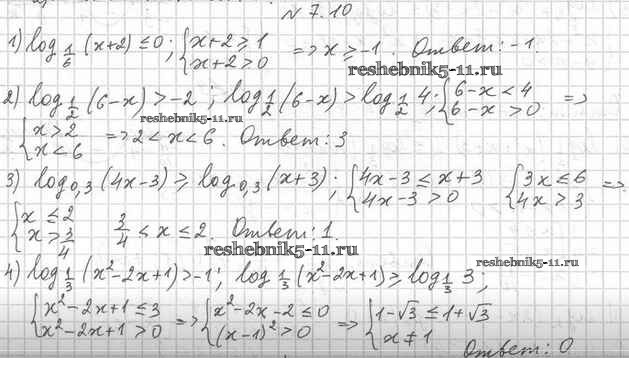 № 7.10
1) log_{1/6} (x+2) ≤ 0; { x+2 ≥ 1 x+2 > 0 => x ≥ -1. Ответ: -1.
reshebnik5-11.ru
2) log_{1/2} (6-x) > -2; log_{1/2} (6-x) > log_{1/2} 4; { 6-x < 4 6-x > 0 =>
{ x > 2 x < 6 => 2 < x < 6. Ответ: 3
reshebnik5-11.ru
3) log_{0,3} (4x-3) ≥ log_{0,3} (x+3); { 4x-3 ≤ x+3 4x-3 > 0 { 3x ≤ 6 4x > 3 =>
{ x ≤ 2 x > 3/4 3/4 < x ≤ 2. Ответ: 1.
reshebnik5-11.ru
reshebnik5-11.ru
4) log_{1/3} (x²-2x+1) > -1; log_{1/3} (x²-2x+1) ≥ log_{1/3} 3;
{ x²-2x+1 ≤ 3 x²-2x+1 > 0 => { x²-2x-2 ≤ 0 (x-1)² > 0 => { 1-√3 ≤ 1+√3 x ≠ 1
Ответ: 0